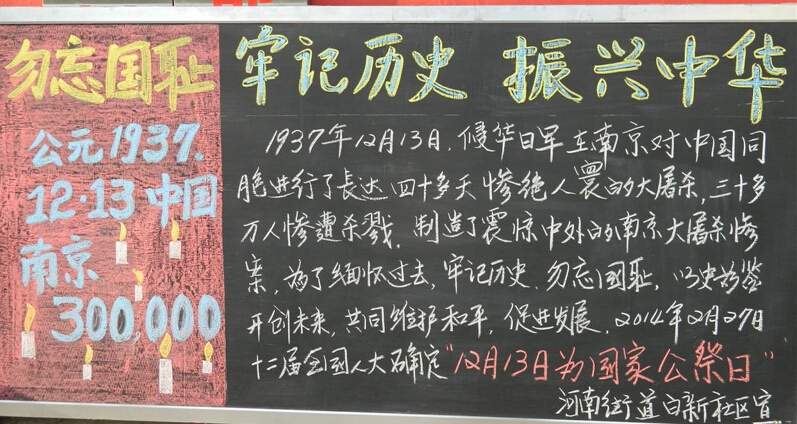 勿忘国耻
公元1937.
12·13中国
南京
300,000
牢记历史 振兴中华
1937年12月13日,侵华日军在南京对中国同
胞进行了長达四十多天惨绝人寰的大屠杀,三十多
万人惨遭杀戮,制造了震惊中外的南京大屠杀惨
案,为了缅怀过去,牢记历史,勿忘国耻,以史为鉴
开创未来,共同维护和平,促进发展,2014年2月27日
十二届全国人大确定"12月13日为国家公祭日"
河南街道白新社区宣